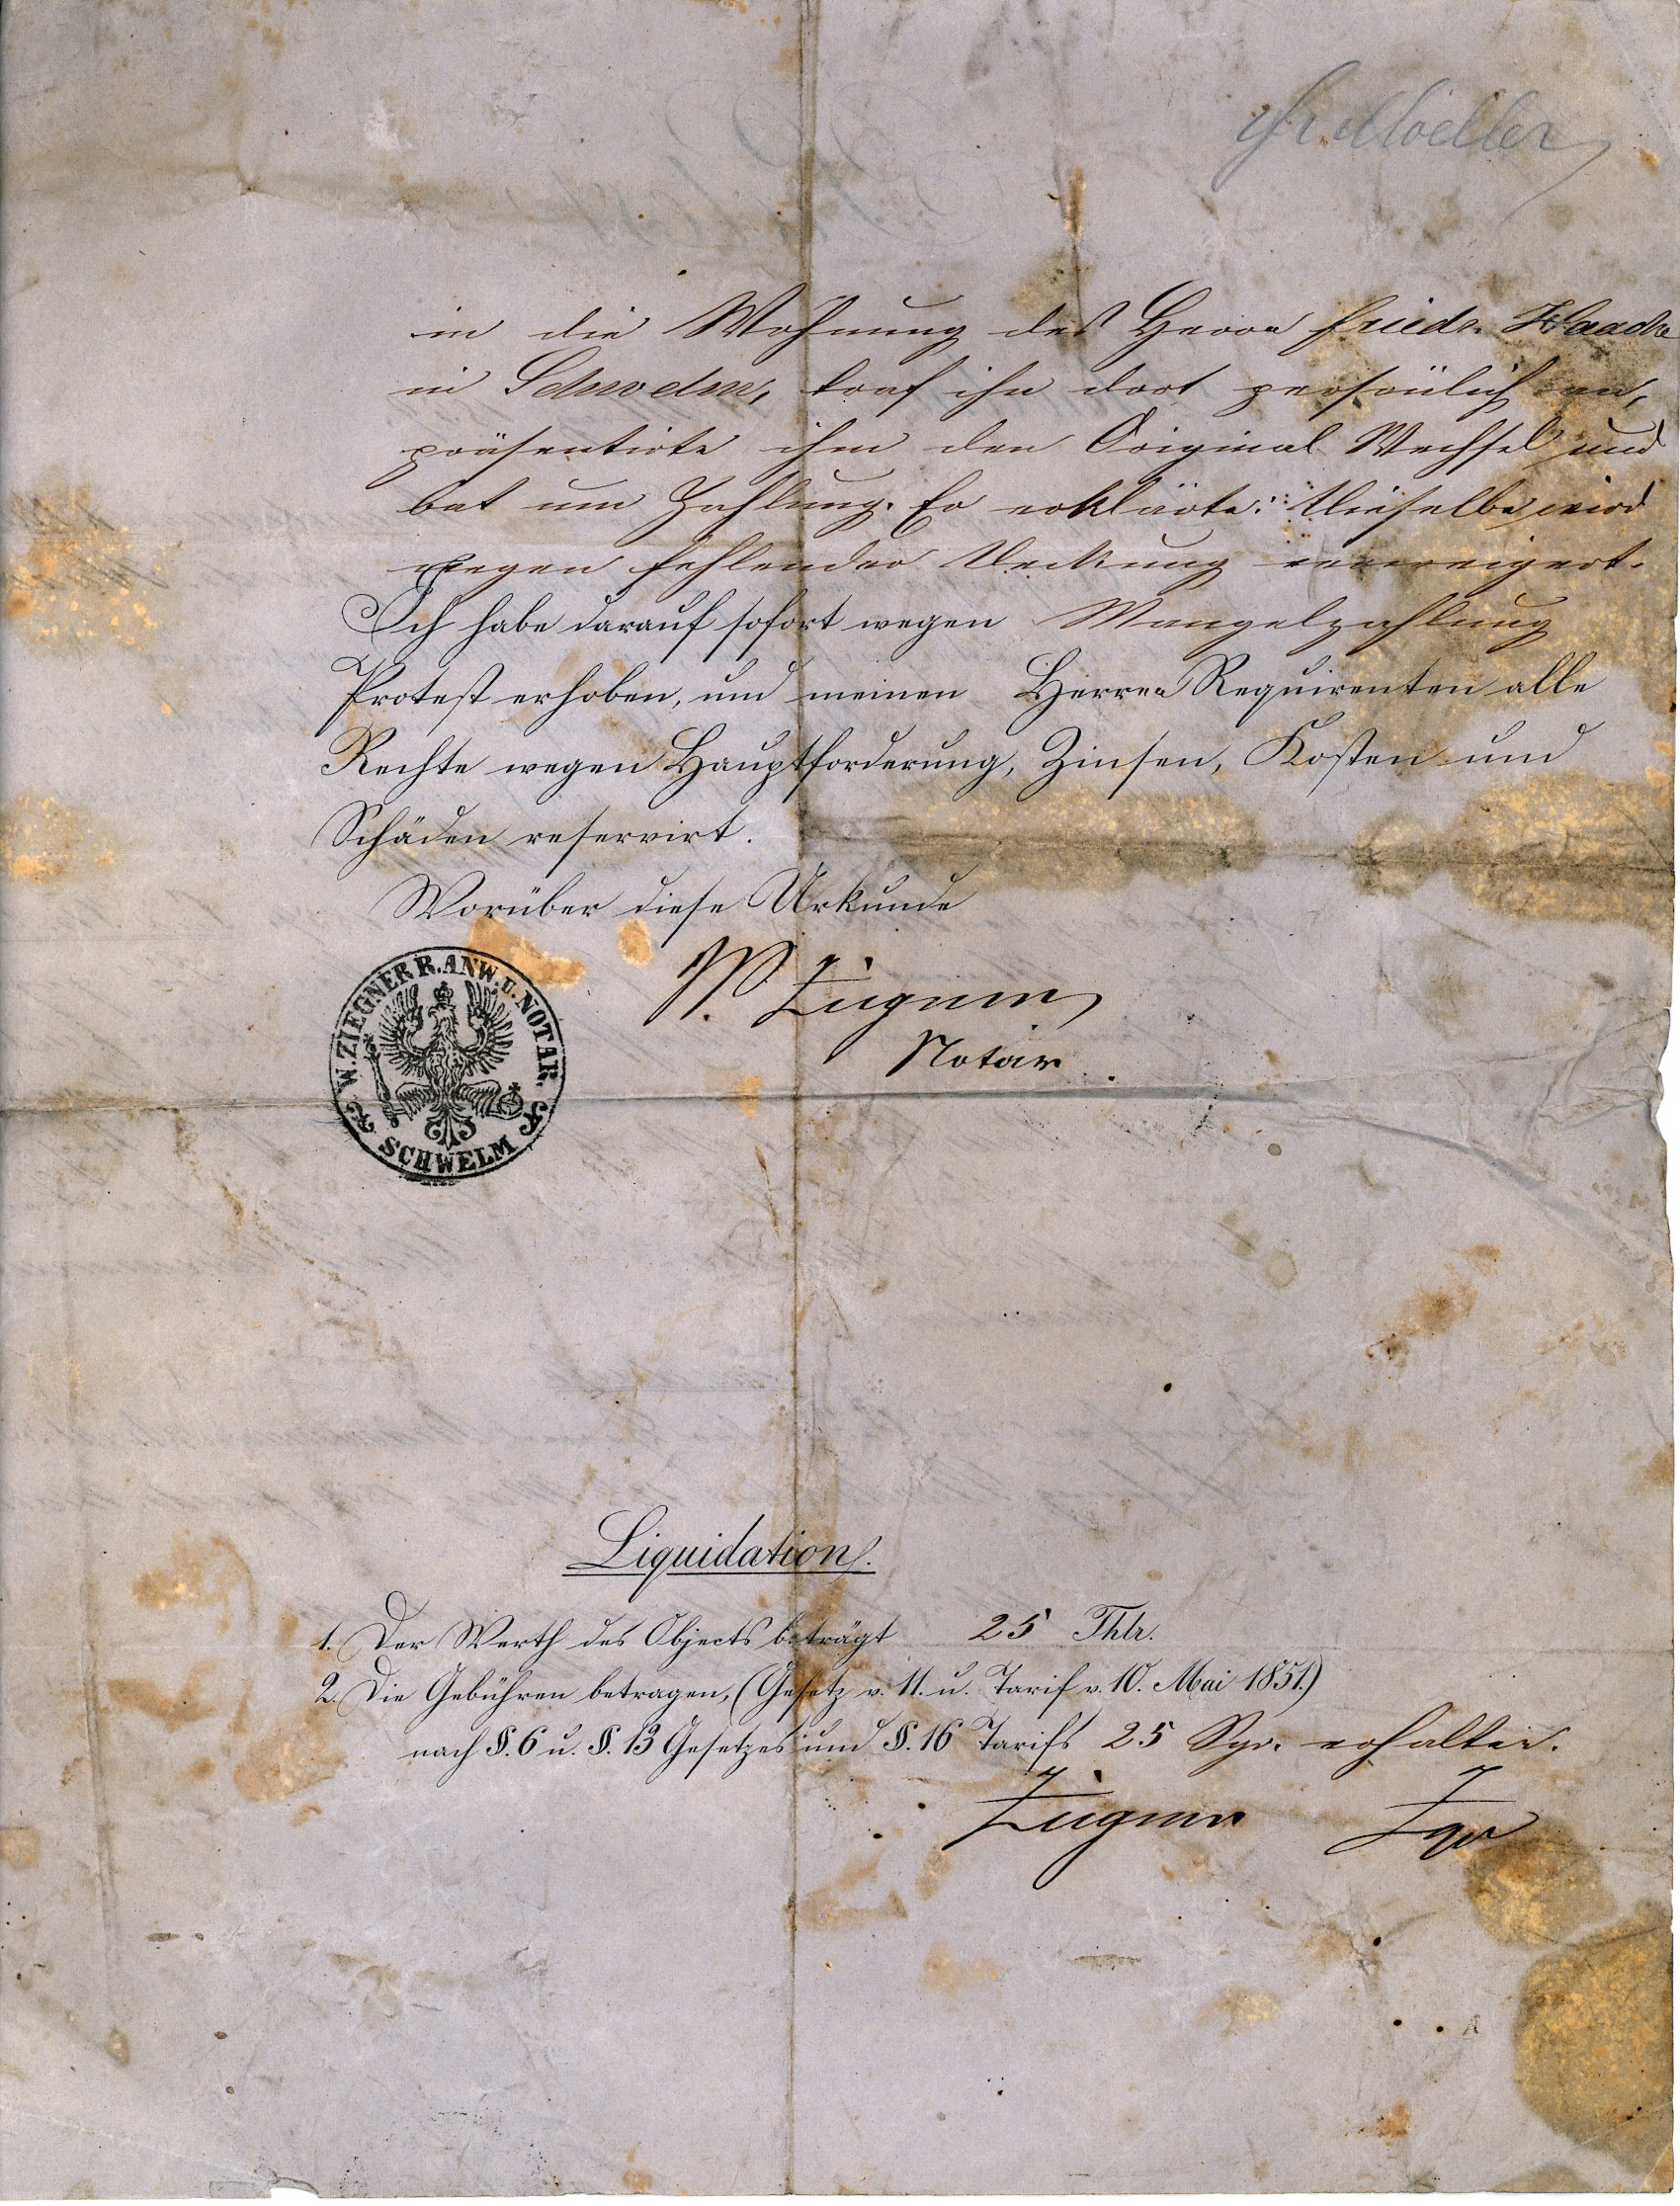 Fr. Moeller
in die Wohnung des Herrn Friedr. Haacke
in Schwelm, traf ihn dort persönlich an,
präsentirte ihm den Original Wechsel und
bat um Zahlung. Er erklärte: Dieselbe wird
wegen fehlender Deckung verweigert.
Ich habe darauf sofort wegen Mangelzahlung
Protest erhoben, und meinen Herren Requirenten alle
Rechte wegen Hauptforderung, Zinsen, Kosten und
Schäden reservirt.
Worüber diese Urkunde
W. Ziegner
Notar
W. ZIEGNER R. ANW. U. NOTAR.
SCHWELM
Liquidation.
1. Der Werth des Objects beträgt 25 Thlr.
2. Die Gebühren betragen, (Gesetz v. 11. u. Tarif v. 10. Mai 1851.)
nach §. 6 u. §. 13 Gesetzes und §. 16 Tarifs 25 Sgr. erhalten.
Ziegner